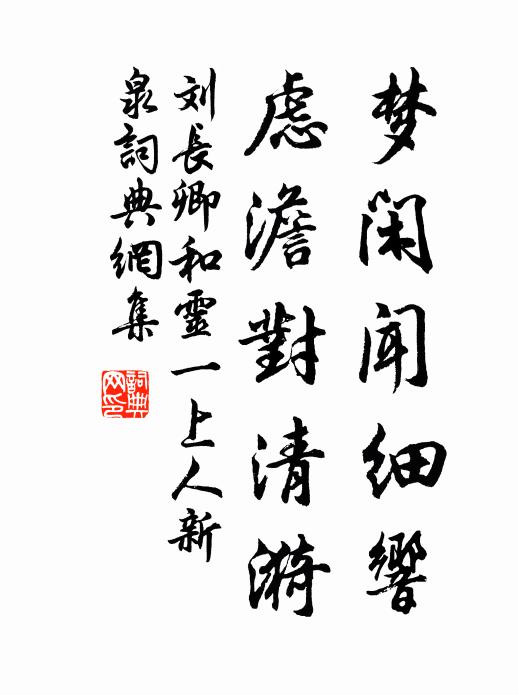 梦闲闻细響
慮澹對清漪
刘長卿和靈一上人新
泉詞典網集
詞典网印